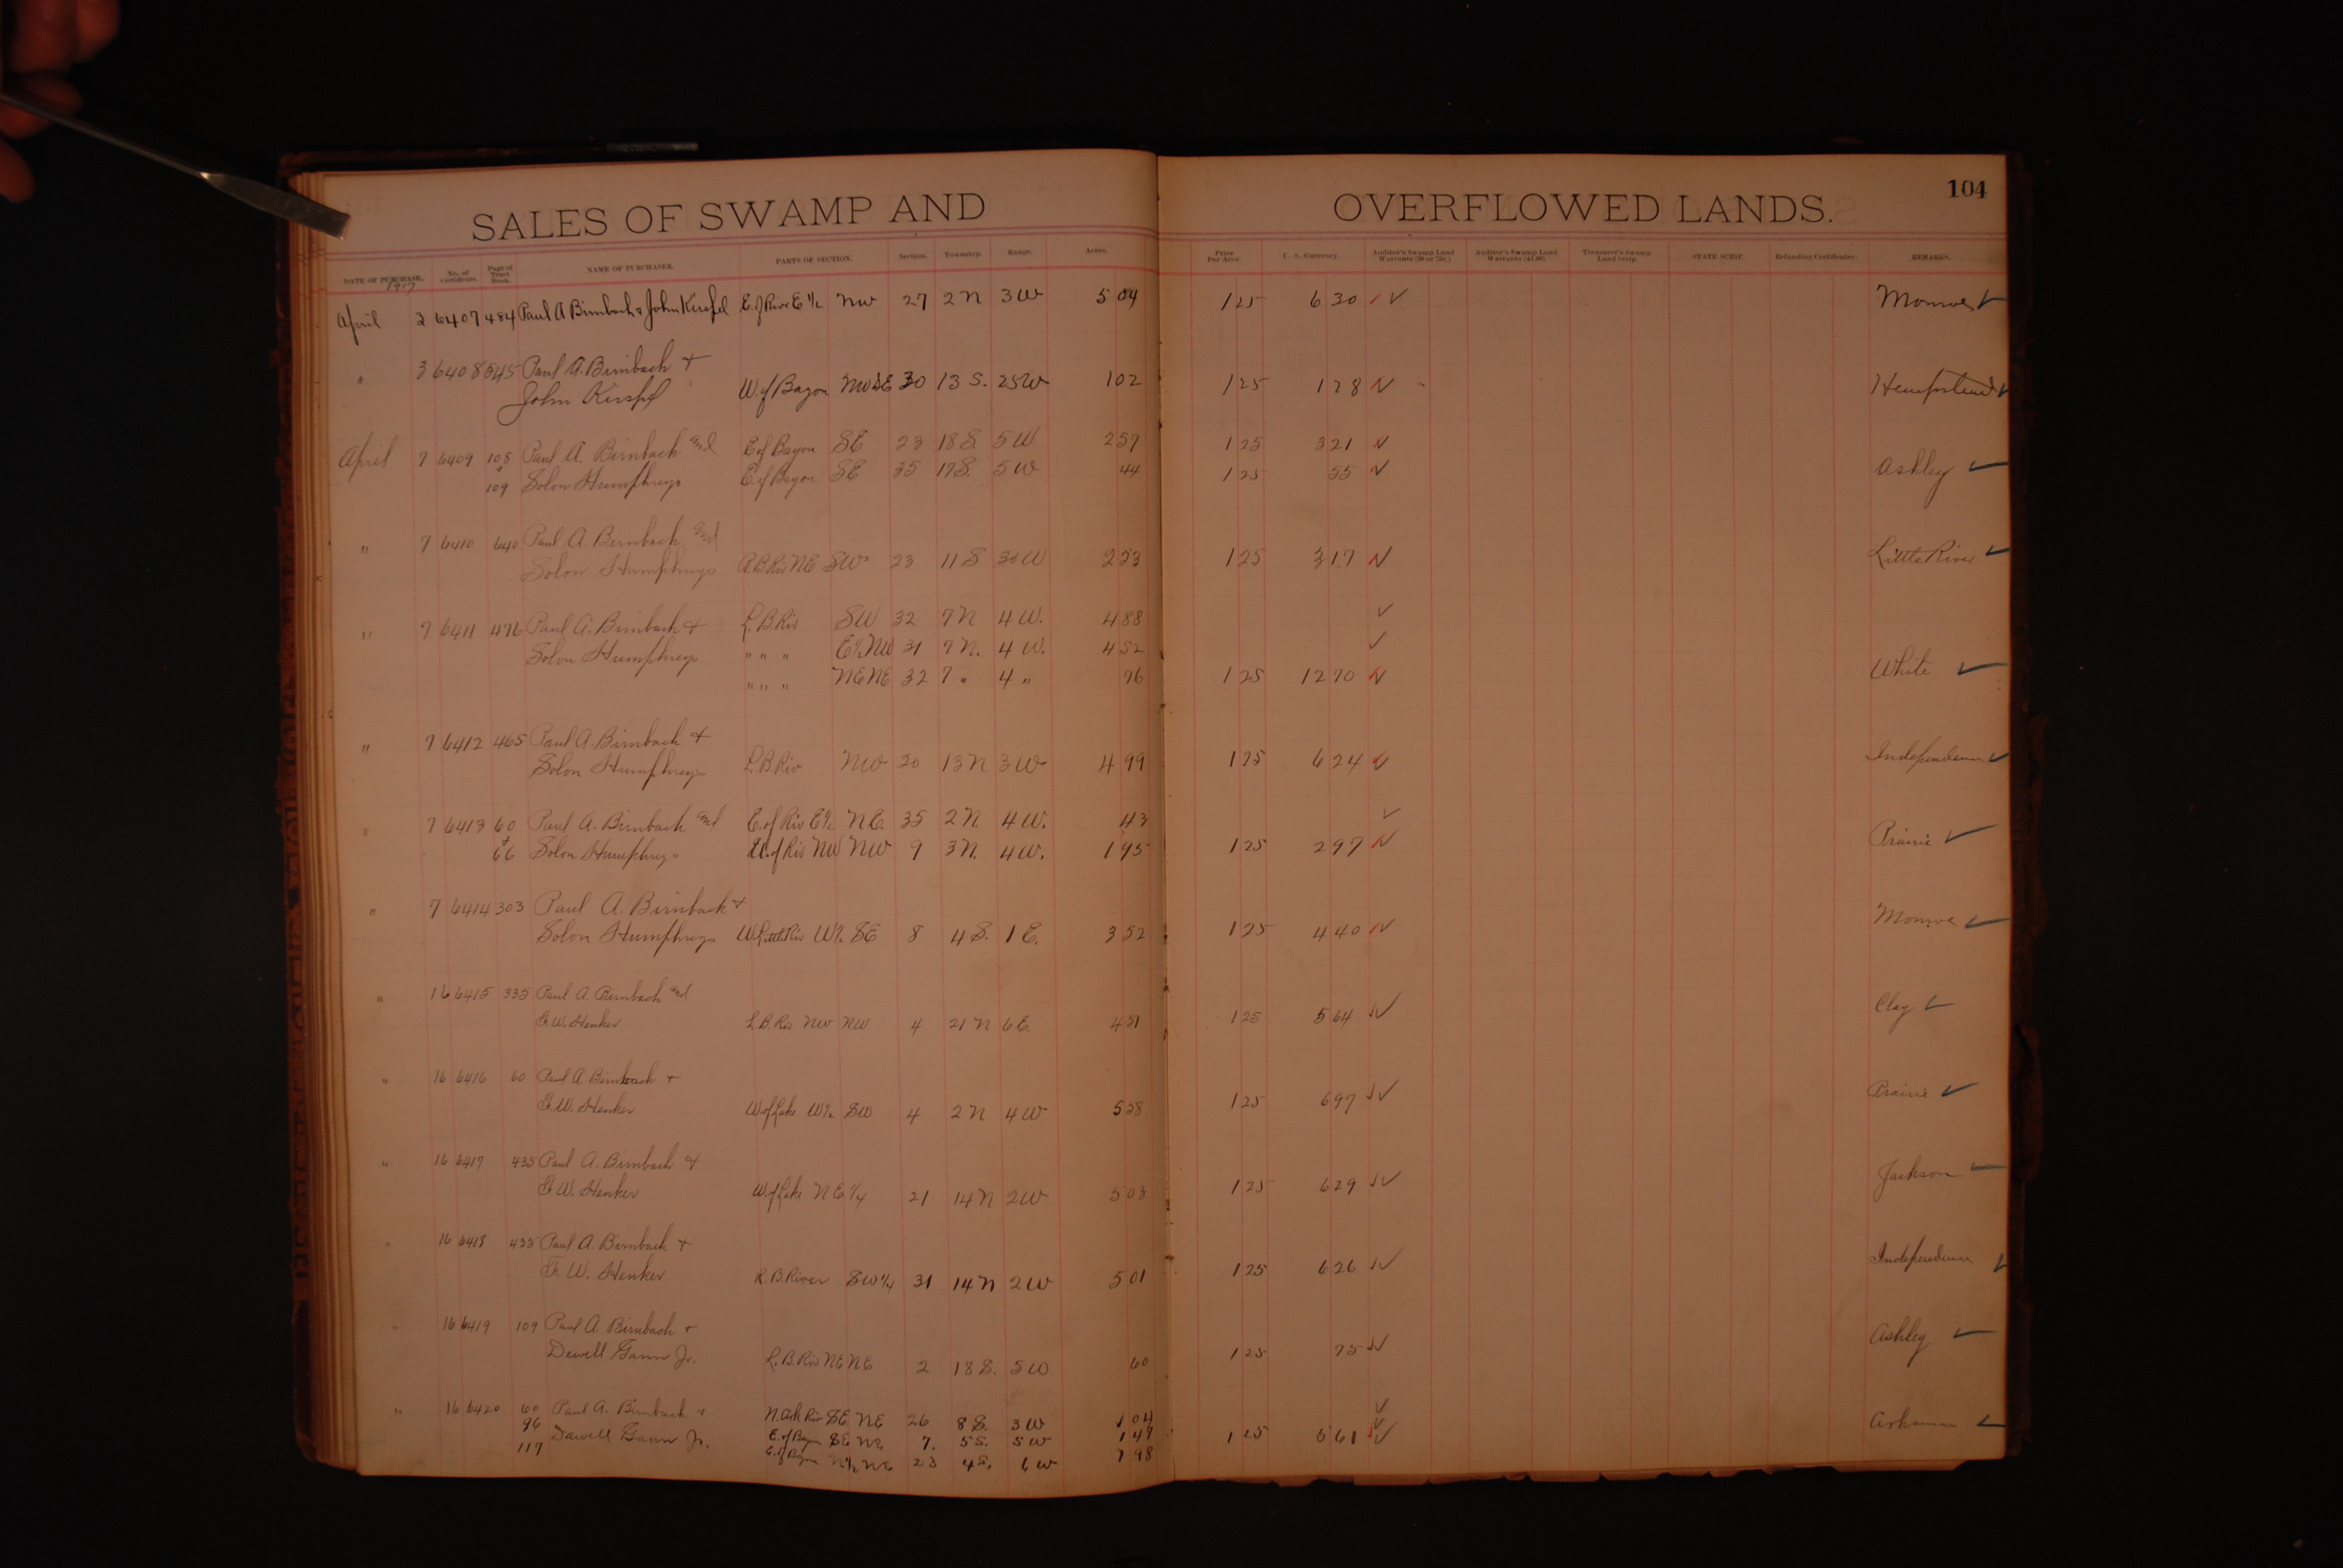 SALES OF SWAMP AND OVERFLOWED LANDS.
104
DATE OF PURCHASE. No. of Certificate. Page of Tract Book. NAME OF PURCHASER. PARTS OF SECTION. Section. Township. Range. Acres. Price Per Acre. U. S. Currency. Auditor's Swamp Land Warrants (50 or 75c.) Auditor's Swamp Land Warrants ($1.00) Treasurer's Swamp Land Scrip. STATE SCRIP. Refunding Certificates. REMARKS.
1917
April 2 6407 484 Paul A Birnbach & John Kirspel E. of River E 1/2 NW 27 2 N 3 W 5 04 1 25 6 30 Monroe
" 3 6408 545 Paul A. Birnbach +
John Kirspel W. of Bayou NW SE 30 13 S. 25 W 1 02 1 25 1 28 Hempstead
April 7 6409 108 Paul A. Birnbach and E of Bayou SE 23 18 S. 5 W 2 57 1 25 3 21
& 109 Solon Humphreys E. of Bayou SE 35 17 S. 5 W 44 1 25 55 Ashley
" 7 6410 640 Paul A. Birnbach and
Solon Humphreys R B Riv NE SW 23 11 S 30 W 2 53 1 25 3 17 Little River
" 7 6411 476 Paul A. Birnbach + L. B. Riv SW 32 7 N 4 W. 4 88
Solon Humphreys " " " E 1/2 NW 31 7 N. 4 W. 4 52
" " " NE NE 32 7 " 4 " 76 1 25 12 70 White
" 7 6412 465 Paul A. Birnbach +
Solon Humphreys L. B Riv NW 20 13 N 3 W 4 99 1 25 6 24 Independence
" 7 6413 60 Paul A. Birnbach and E. of Riv E 1/2 NE. 35 2 N. 4 W. 43
& 66 Solon Humphreys W. of Riv NW NW 9 3 N. 4 W. 1 95 1 25 2 97 Prairie
" 7 6414 303 Paul A. Birnbach +
Solon Humphreys W. Little Riv W 1/2 SE 8 4 S. 1 E. 3 52 1 25 4 40 Monroe
" 16 6415 335 Paul A. Birnbach and
F. W. Henker L. B. Riv NW NW 4 21 N 6 E. 4 51 1 25 5 64 Clay
" 16 6416 60 Paul A. Birnbach +
F. W. Henker W of Lake W 1/2 SW 4 2 N 4 W 5 58 1 25 6 97 Prairie
" 16 6417 435 Paul A. Birnbach &
F. W. Henker W. of Lake N E 1/4 21 14 N 2 W 5 03 1 25 6 29 Jackson
" 16 6418 435 Paul A. Birnbach +
F. W. Henker R. B. River SW 1/4 31 14 N 2 W 5 01 1 25 6 26 Independence
" 16 6419 109 Paul A. Birnbach +
Dewell Gann Jr. L. B. Riv NE NE 2 18 S. 5 W 60 1 25 75 Ashley
" 16 6420 60 Paul A. Birnbach + N. Ark Riv SE. NE 26 8 S. 3 W 1 04
96 Dewell Gann Jr. E. of Bayou SE NE 7. 5 S. 5 W 1 47
117 E. of Bayou N 1/2 NE 23 4 S. 6 W 1 98 1 25 5 61 Arkansas